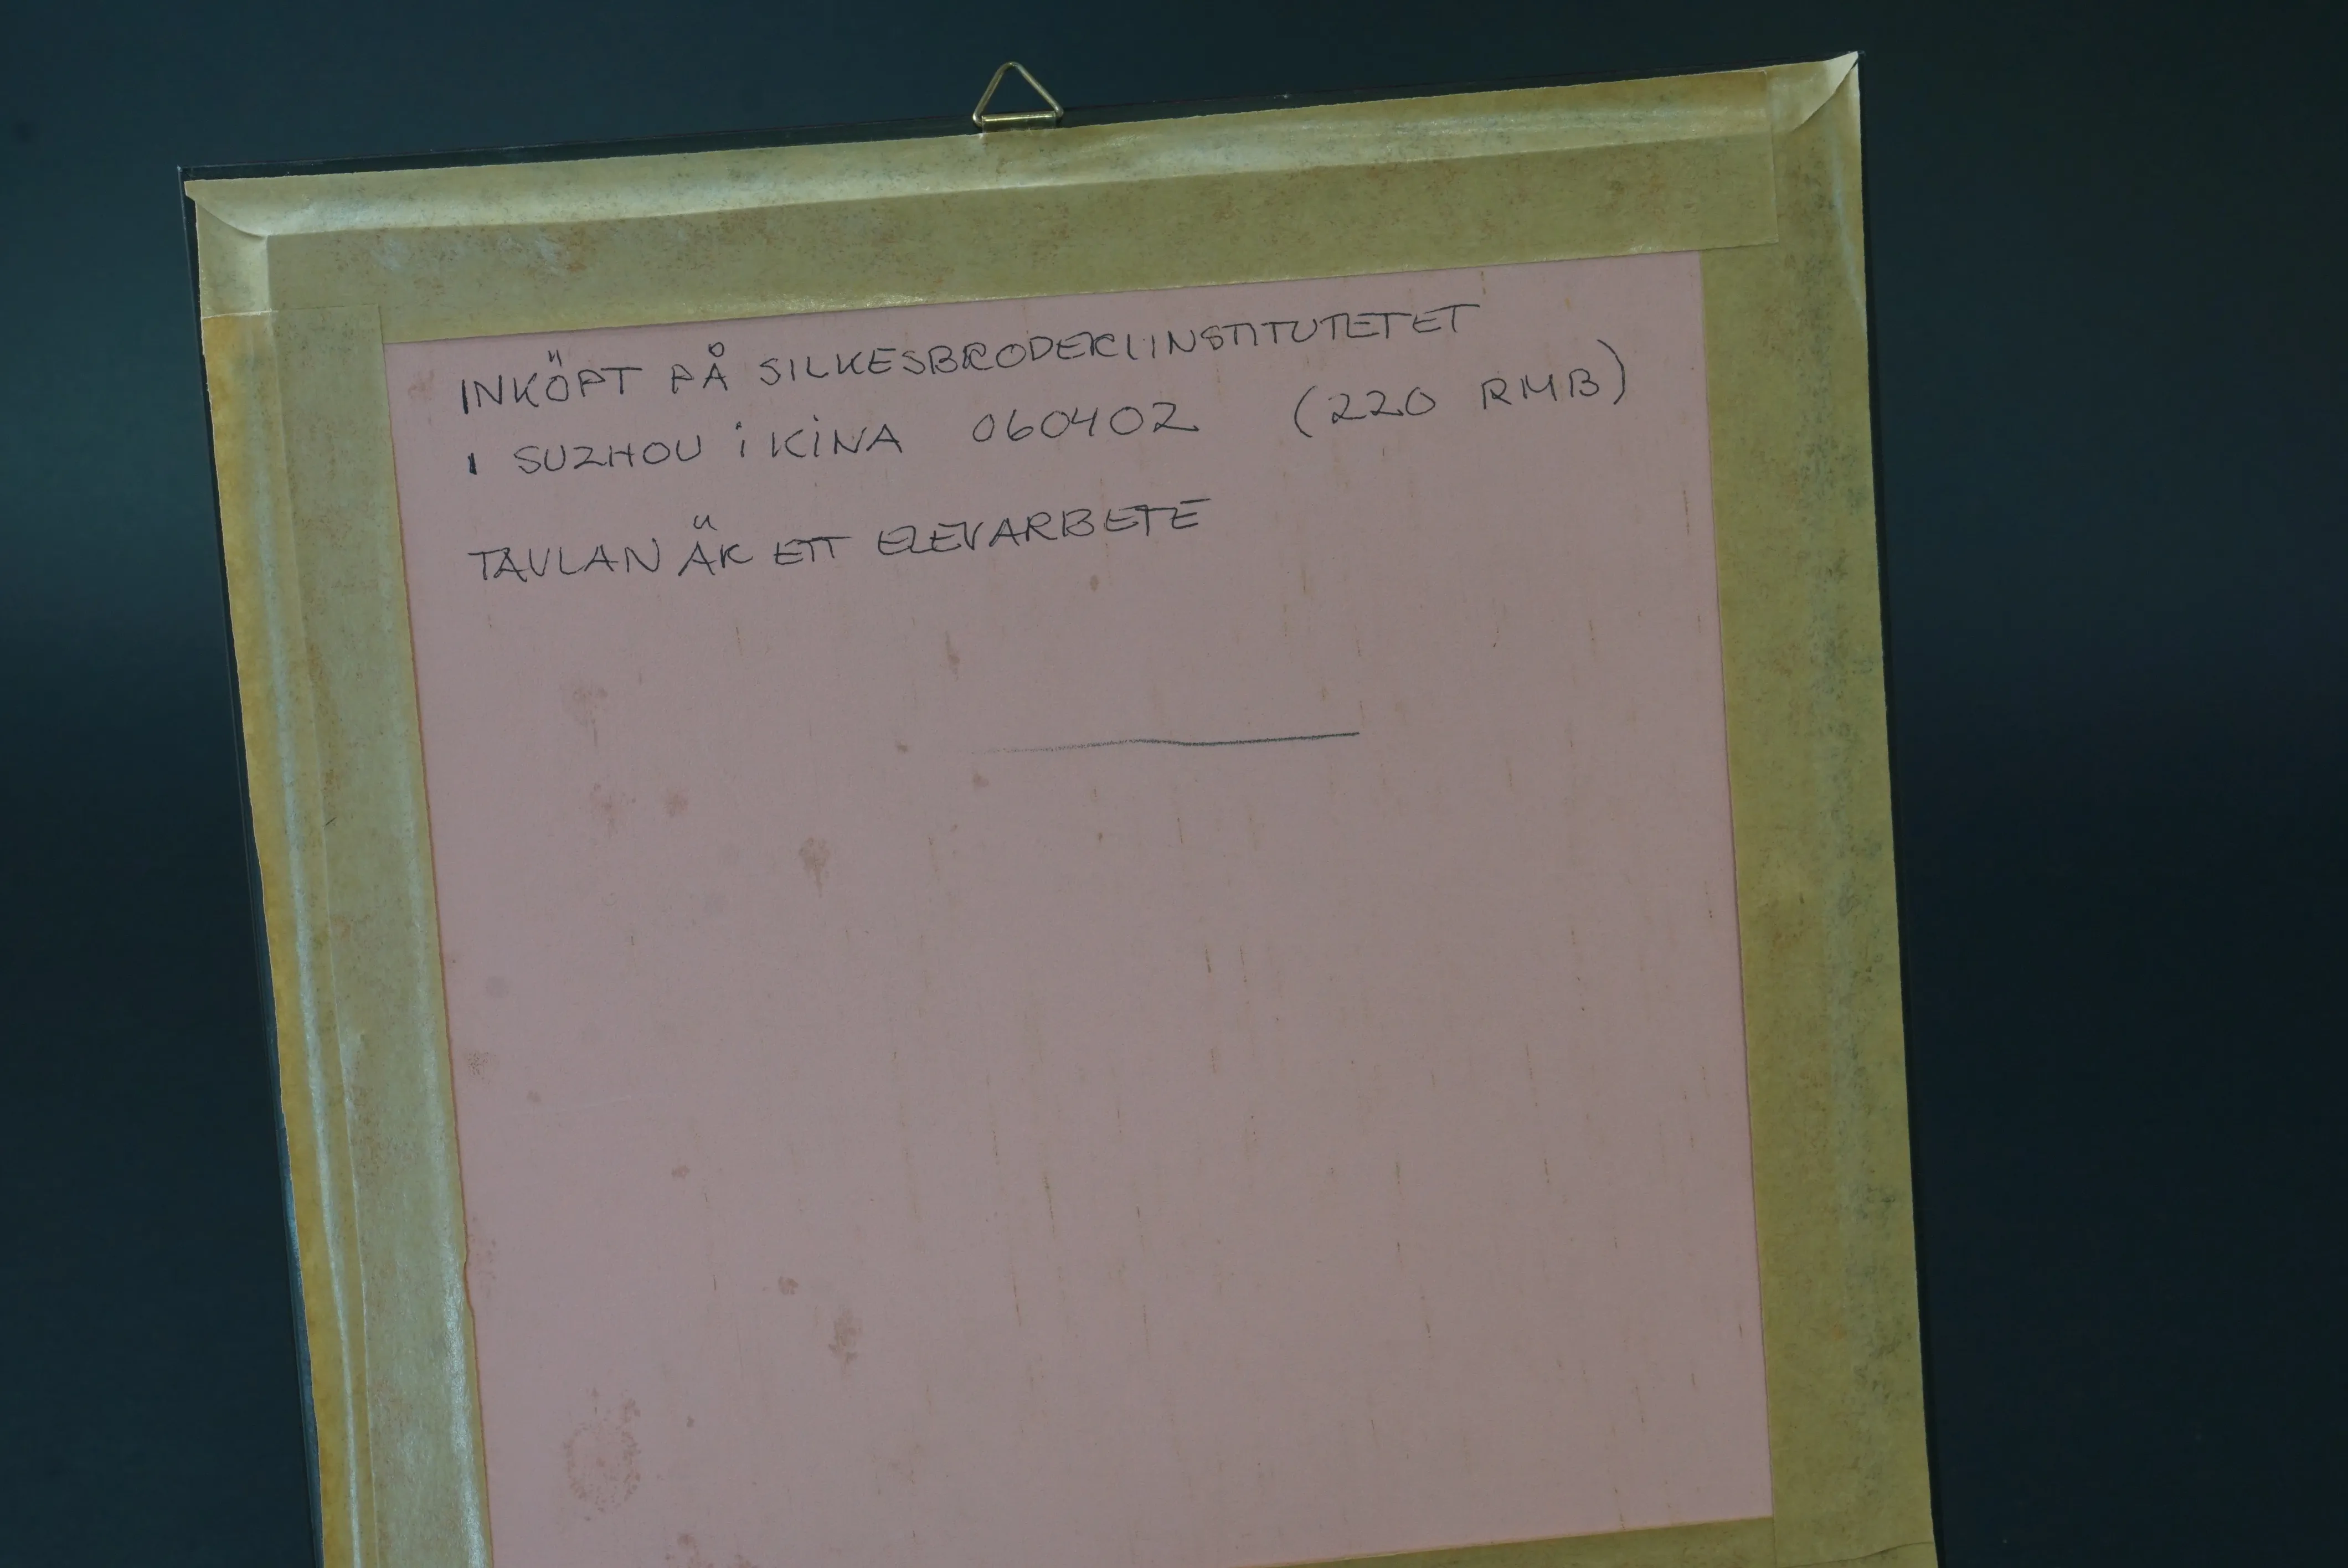 INKÖPT PÅ SILKESBRODERIINSTITUTETET
I SUZHOU i KiNA 060402 (220 RMB)
TAVLAN ÄR ETT ELEVARBETE